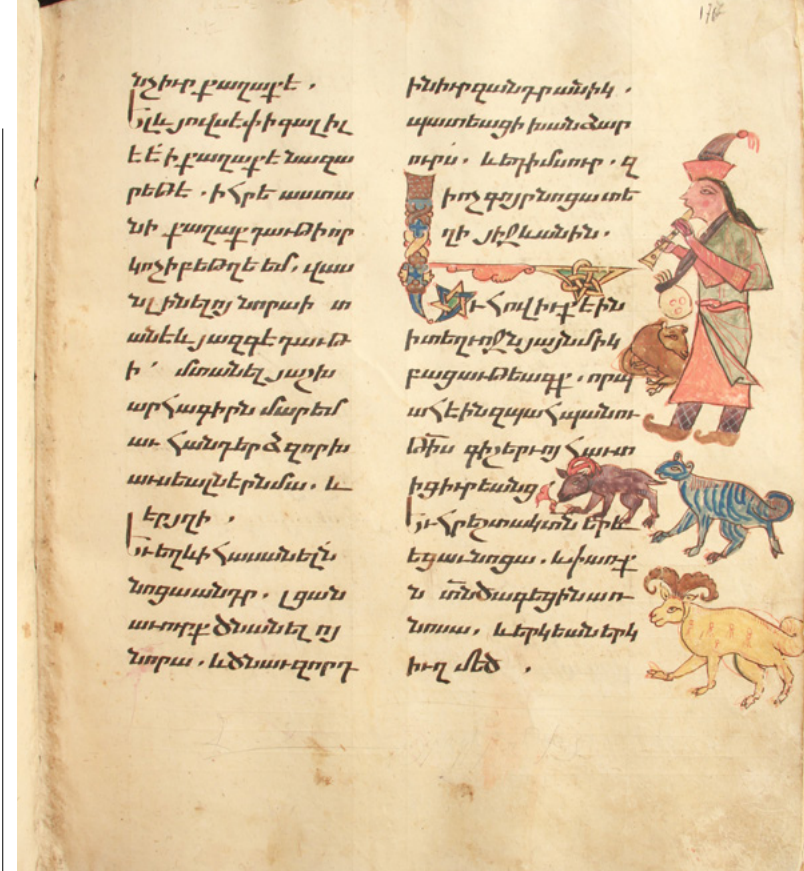 նչիւր քաղաքէ .
Ել և յովսէփ ի գալիլ
էէ ի քաղաքէ նազա
րեթէ . ի հրէաստա
նի քաղաք դաւթի որ
կոչի բեթղէեմ . վաս
ն լինելոյ նորա ի տ
անէ և յազգէ դաւթ
ի ՝ մտանել յաշխ
արհագիրն մարեմ
աւ հանդերձ զոր խ
աւսեալն էր նմա . և
էր յղի .
Եւ եղև ի հասանելն
նոցա անդր . լցան
աւուրք ծնանելոյ
նորա . և ծնաւ զորդ
ին իւր զանդրանիկ .
պատեաց ի խանձար
ուրս . և եդ ի մսուր . զ
ի ոչ գոյր նոցա տե
ղի յիջևանին .
Եւ հովիւք էին
ի տեղւոջն յայնմիկ
բացաւթեագք . որպ
ահէին զպահպանու
թիս գիշերոյ հաւտ
ից իւրեանց .
Եւ հրեշտակ տն երև
եցաւ նոցա . և փառք
ն տն ծագեցին առ
նոսա . և երկեան երկ
իւղ մեծ .